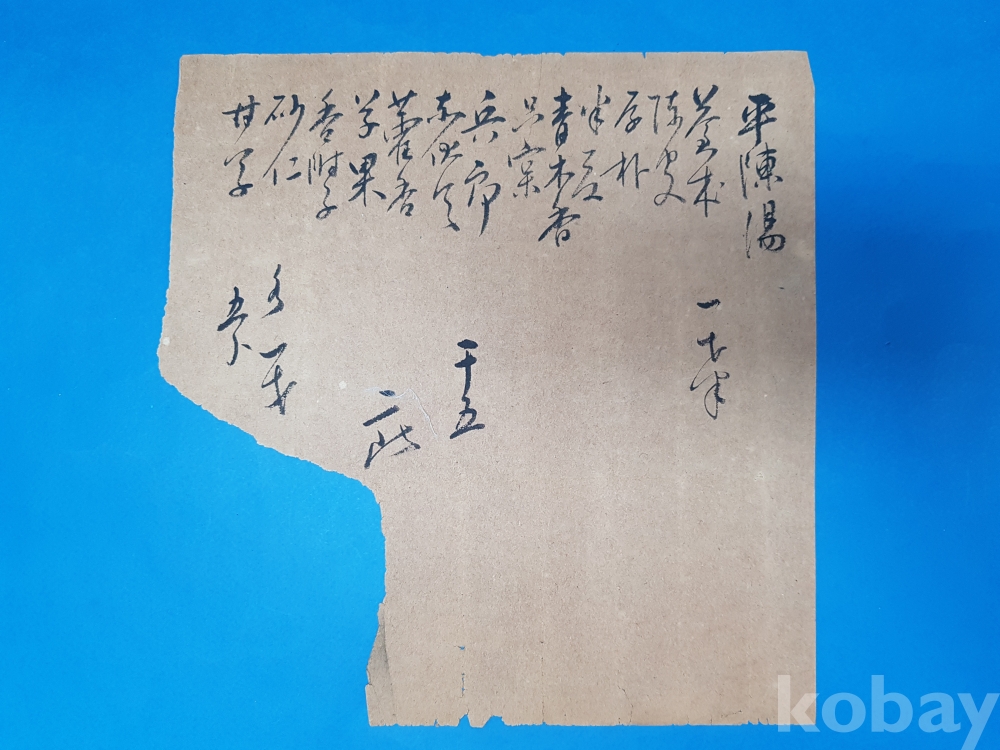 平陳湯
蒼朮 一戔半
陳皮
厚朴
半夏
青木香
兵郎
赤伏令 干五
藿香
草果
香附子
砂仁 各一戔
甘草 五分
kobay